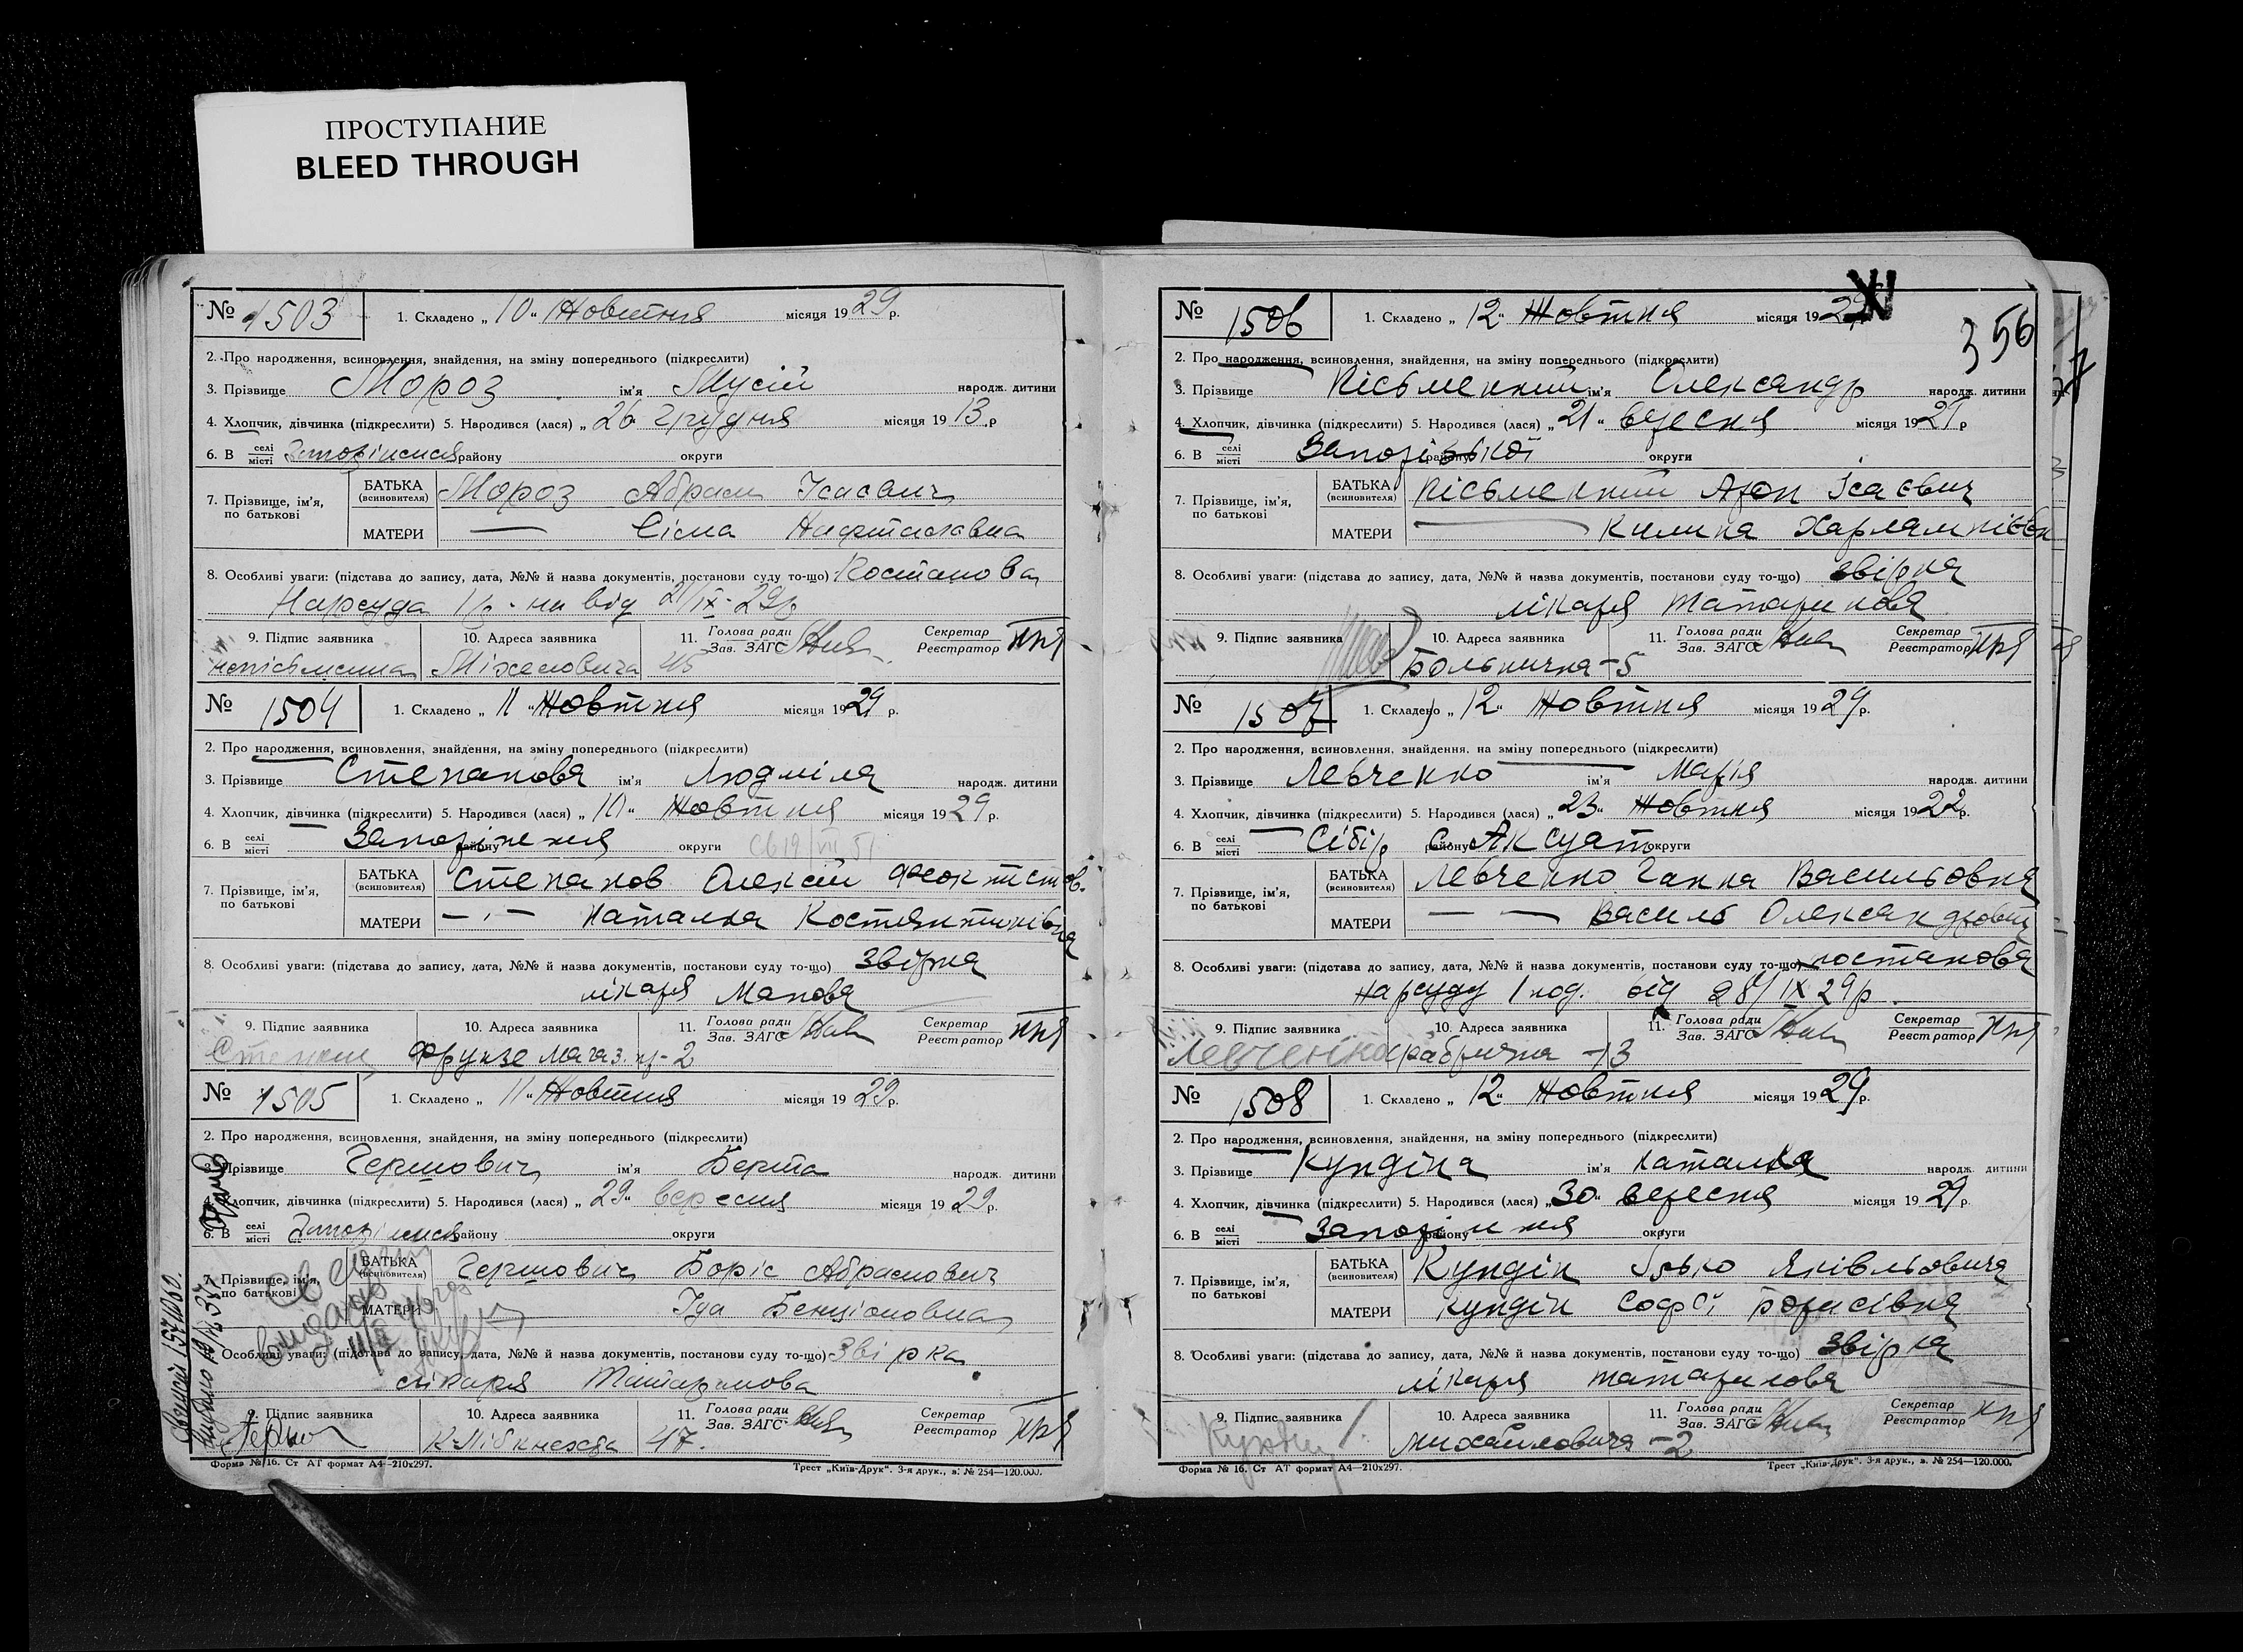 ПРОСТУПАНИЕ
BLEED THROUGH
№ 1503 1. Складено „ 10 “ Жовтня місяця 1929 р.
2. Про народження, всиновлення, знайдення, на зміну попереднього (підкреслити)
3. Прізвище Мороз ім'я Мусій народж. дитини
4. Хлопчик, дівчинка (підкреслити) 5. Народився (лася) „ 26 грудня місяця 1913 р
6. В селі місті Запоріжжя району округи
7. Прізвище, ім'я, по батькові БАТЬКА (всиновителя) Мороз Абрам Ісаєвич
МАТЕРИ — Сіма Нафталівна
8. Особливі уваги: (підстава до запису, дата, №№ й назва документів, постанови суду то-що) Постанова
Нарсуда від 21/IX-29р
9. Підпис заявника 10. Адреса заявника 11. Голова ради Зав. ЗАГС Секретар Реєстратор
неписьменна Міхеловича 45
№ 1504 1. Складено „ 11 “ Жовтня місяця 1929 р.
2. Про народження, всиновлення, знайдення, на зміну попереднього (підкреслити)
3. Прізвище Степанова ім'я Людміла народж. дитини
4. Хлопчик, дівчинка (підкреслити) 5. Народився (лася) „ 10 “ Жовтня місяця 1929 р.
6. В селі місті Запоріжжя району округи
7. Прізвище, ім'я, по батькові БАТЬКА (всиновителя) Степанов Олексій Феоктистов.
МАТЕРИ — „ — Наталка Костянтинівна
8. Особливі уваги: (підстава до запису, дата, №№ й назва документів, постанови суду то-що) звірка
лікаря Манова
9. Підпис заявника 10. Адреса заявника 11. Голова ради Зав. ЗАГС Секретар Реєстратор
Фрунзе Магаз. 2
№ 1505 1. Складено „ 11 “ Жовтня місяця 1929 р.
2. Про народження, всиновлення, знайдення, на зміну попереднього (підкреслити)
3. Прізвище Гершович ім'я Берта народж. дитини
4. Хлопчик, дівчинка (підкреслити) 5. Народився (лася) „ 29 “ вересня місяця 1929 р.
6. В селі місті Запоріжжя району округи
7. Прізвище, ім'я, по батькові БАТЬКА (всиновителя) Гершович Боріс Абрамович
МАТЕРИ Іда Бенціоновна
8. Особливі уваги: (підстава до запису, дата, №№ й назва документів, постанови суду то-що) Звірка
лікаря Татаринова
9. Підпис заявника 10. Адреса заявника 11. Голова ради Зав. ЗАГС Секретар Реєстратор
К-Лібкнехта 47.
Форма № 16. Ст АТ формат А4—210х297. Трест „Київ-Друк“. 3-я друк., з. № 254—120.000.
№ 1506 1. Складено „ 12 “ Жовтня місяця 1929
356
2. Про народження, всиновлення, знайдення, на зміну попереднього (підкреслити)
3. Прізвище Пісьменний ім'я Олександр народж. дитини
4. Хлопчик, дівчинка (підкреслити) 5. Народився (лася) „ 21 “ вересня місяця 1929 р
6. В селі місті району округи
7. Прізвище, ім'я, по батькові БАТЬКА (всиновителя) Пісьменний Арон Ісаєвич
МАТЕРИ — Килина Харлампіевн
8. Особливі уваги: (підстава до запису, дата, №№ й назва документів, постанови суду то-що) звірка
лікаря Татаринова
9. Підпис заявника 10. Адреса заявника 11. Голова ради Зав. ЗАГС Секретар Реєстратор
Больнична-5
№ 1507 1. Складено „ 12 “ Жовтня місяця 1929 р.
2. Про народження, всиновлення, знайдення, на зміну попереднього (підкреслити)
3. Прізвище Левченко ім'я Марія народж. дитини
4. Хлопчик, дівчинка (підкреслити) 5. Народився (лася) „ 23 “ Жовтня місяця 1922 р.
6. В селі місті Сібір району с. Аксуат округи
7. Прізвище, ім'я, по батькові БАТЬКА (всиновителя) Левченко Ганна Васильовна
МАТЕРИ — — Василь Олександрович
8. Особливі уваги: (підстава до запису, дата, №№ й назва документів, постанови суду то-що) постанова
нарсуду від 28/IX 29р
9. Підпис заявника 10. Адреса заявника 11. Голова ради Зав. ЗАГС Секретар Реєстратор
Левченко Фабрична -13
№ 1508 1. Складено „ 12 “ Жовтня місяця 1929 р.
2. Про народження, всиновлення, знайдення, на зміну попереднього (підкреслити)
3. Прізвище Кундіна ім'я Наталка народж. дитини
4. Хлопчик, дівчинка (підкреслити) 5. Народився (лася) „ 30 “ вересня місяця 1929 р.
6. В селі місті Запоріжжя району округи
7. Прізвище, ім'я, по батькові БАТЬКА (всиновителя) Кундін Яківльовича
МАТЕРИ Кундін Софії Борисівна
8. Особливі уваги: (підстава до запису, дата, №№ й назва документів, постанови суду то-що) звірка
лікаря Татаринова
9. Підпис заявника 10. Адреса заявника 11. Голова ради Зав. ЗАГС Секретар Реєстратор
Михайловича -2
Форма № 16. Ст АТ формат А4—210х297. Трест „Київ-Друк“. 3-я друк., з. № 254—120.000.